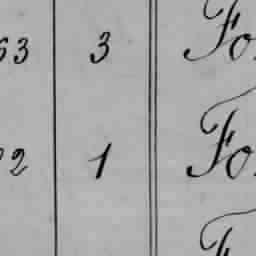 63 3 Fo
2 1 Fo